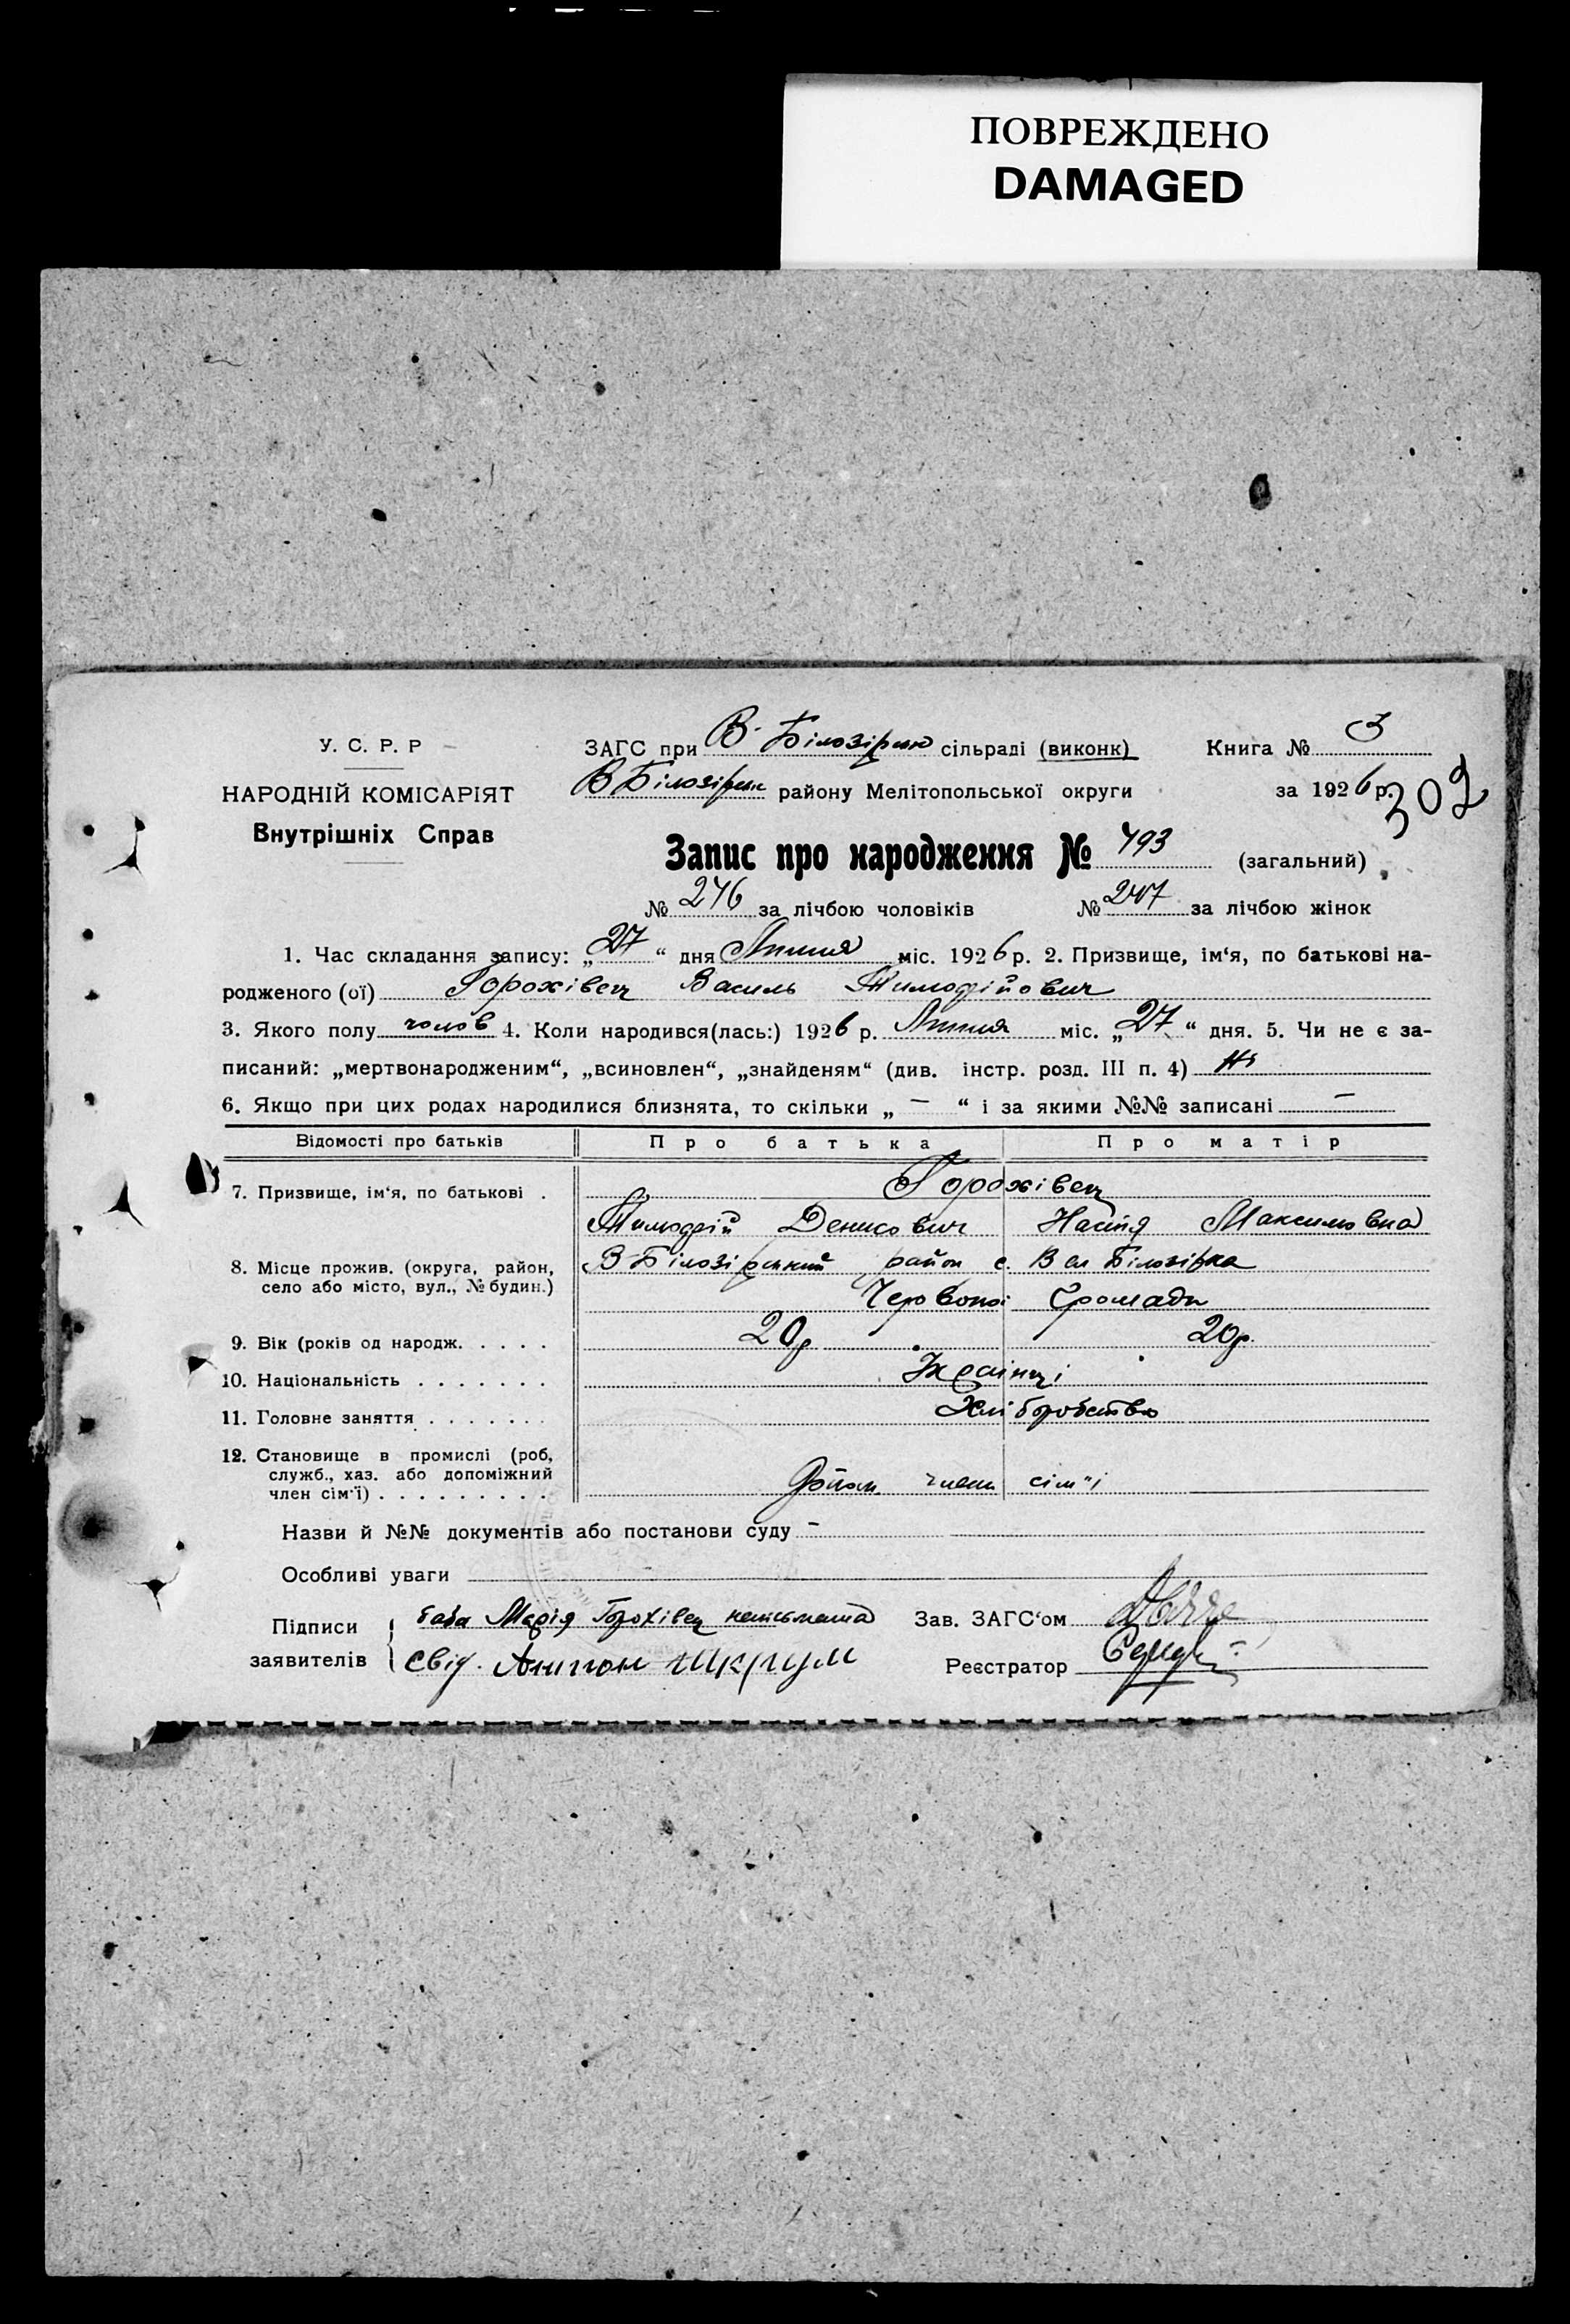 ПОВРЕЖДЕНО
DAMAGED
У. С. Р. Р
НАРОДНІЙ КОМІСАРІЯТ
Внутрішніх Справ
ЗАГС при В-Білозірськ сільраді (виконк)
В Білозірськ району Мелітопольської округи
Книга № 3
за 1926 р.
302
Запис про народження № 493 (загальний)
№ 246 за лічбою чоловіків № 247 за лічбою жінок
1. Час складання запису: „27“ дня Липня міс. 1926 р. 2. Призвище, ім'я, по батькові на-
родженого (ої) Горохівець Василь Тимофійович
3. Якого полу чолов 4. Коли народився(лась:) 1926 р. Липня міс. „27“ дня. 5. Чи не є за-
писаний: „мертвонародженим“, „всиновлен“, „знайденям“ (див. інстр. розд. III п. 4) Ні
6. Якщо при цих родах народилися близнята, то скільки „ – “ і за якими №№ записані –
Відомості про батьків Про батька Про матір
7. Призвище, ім'я, по батькові . Горохівець
Тимофій Денисович Настя Максимовна
8. Місце прожив. (округа, район, В-Білозірський район с. Вел Білозірка
село або місто, вул., № будин.)
Червоної Громади
9. Вік (років од народж. . . . . 20р. 20р.
10. Національність . . . . . . . Українці
11. Головне заняття . . . . . . . Хліборобство
12. Становище в промислі (роб,
служб., хаз. або допоміжний
член сім'ї) . . . . . . . . . Допом. член сім"ї
Назви й №№ документів або постанови суду –
Особливі уваги
Підписи баба Марія Горохівец неписьмена Зав. ЗАГС'ом
заявителів Свід. Антон Шкрум Реєстратор